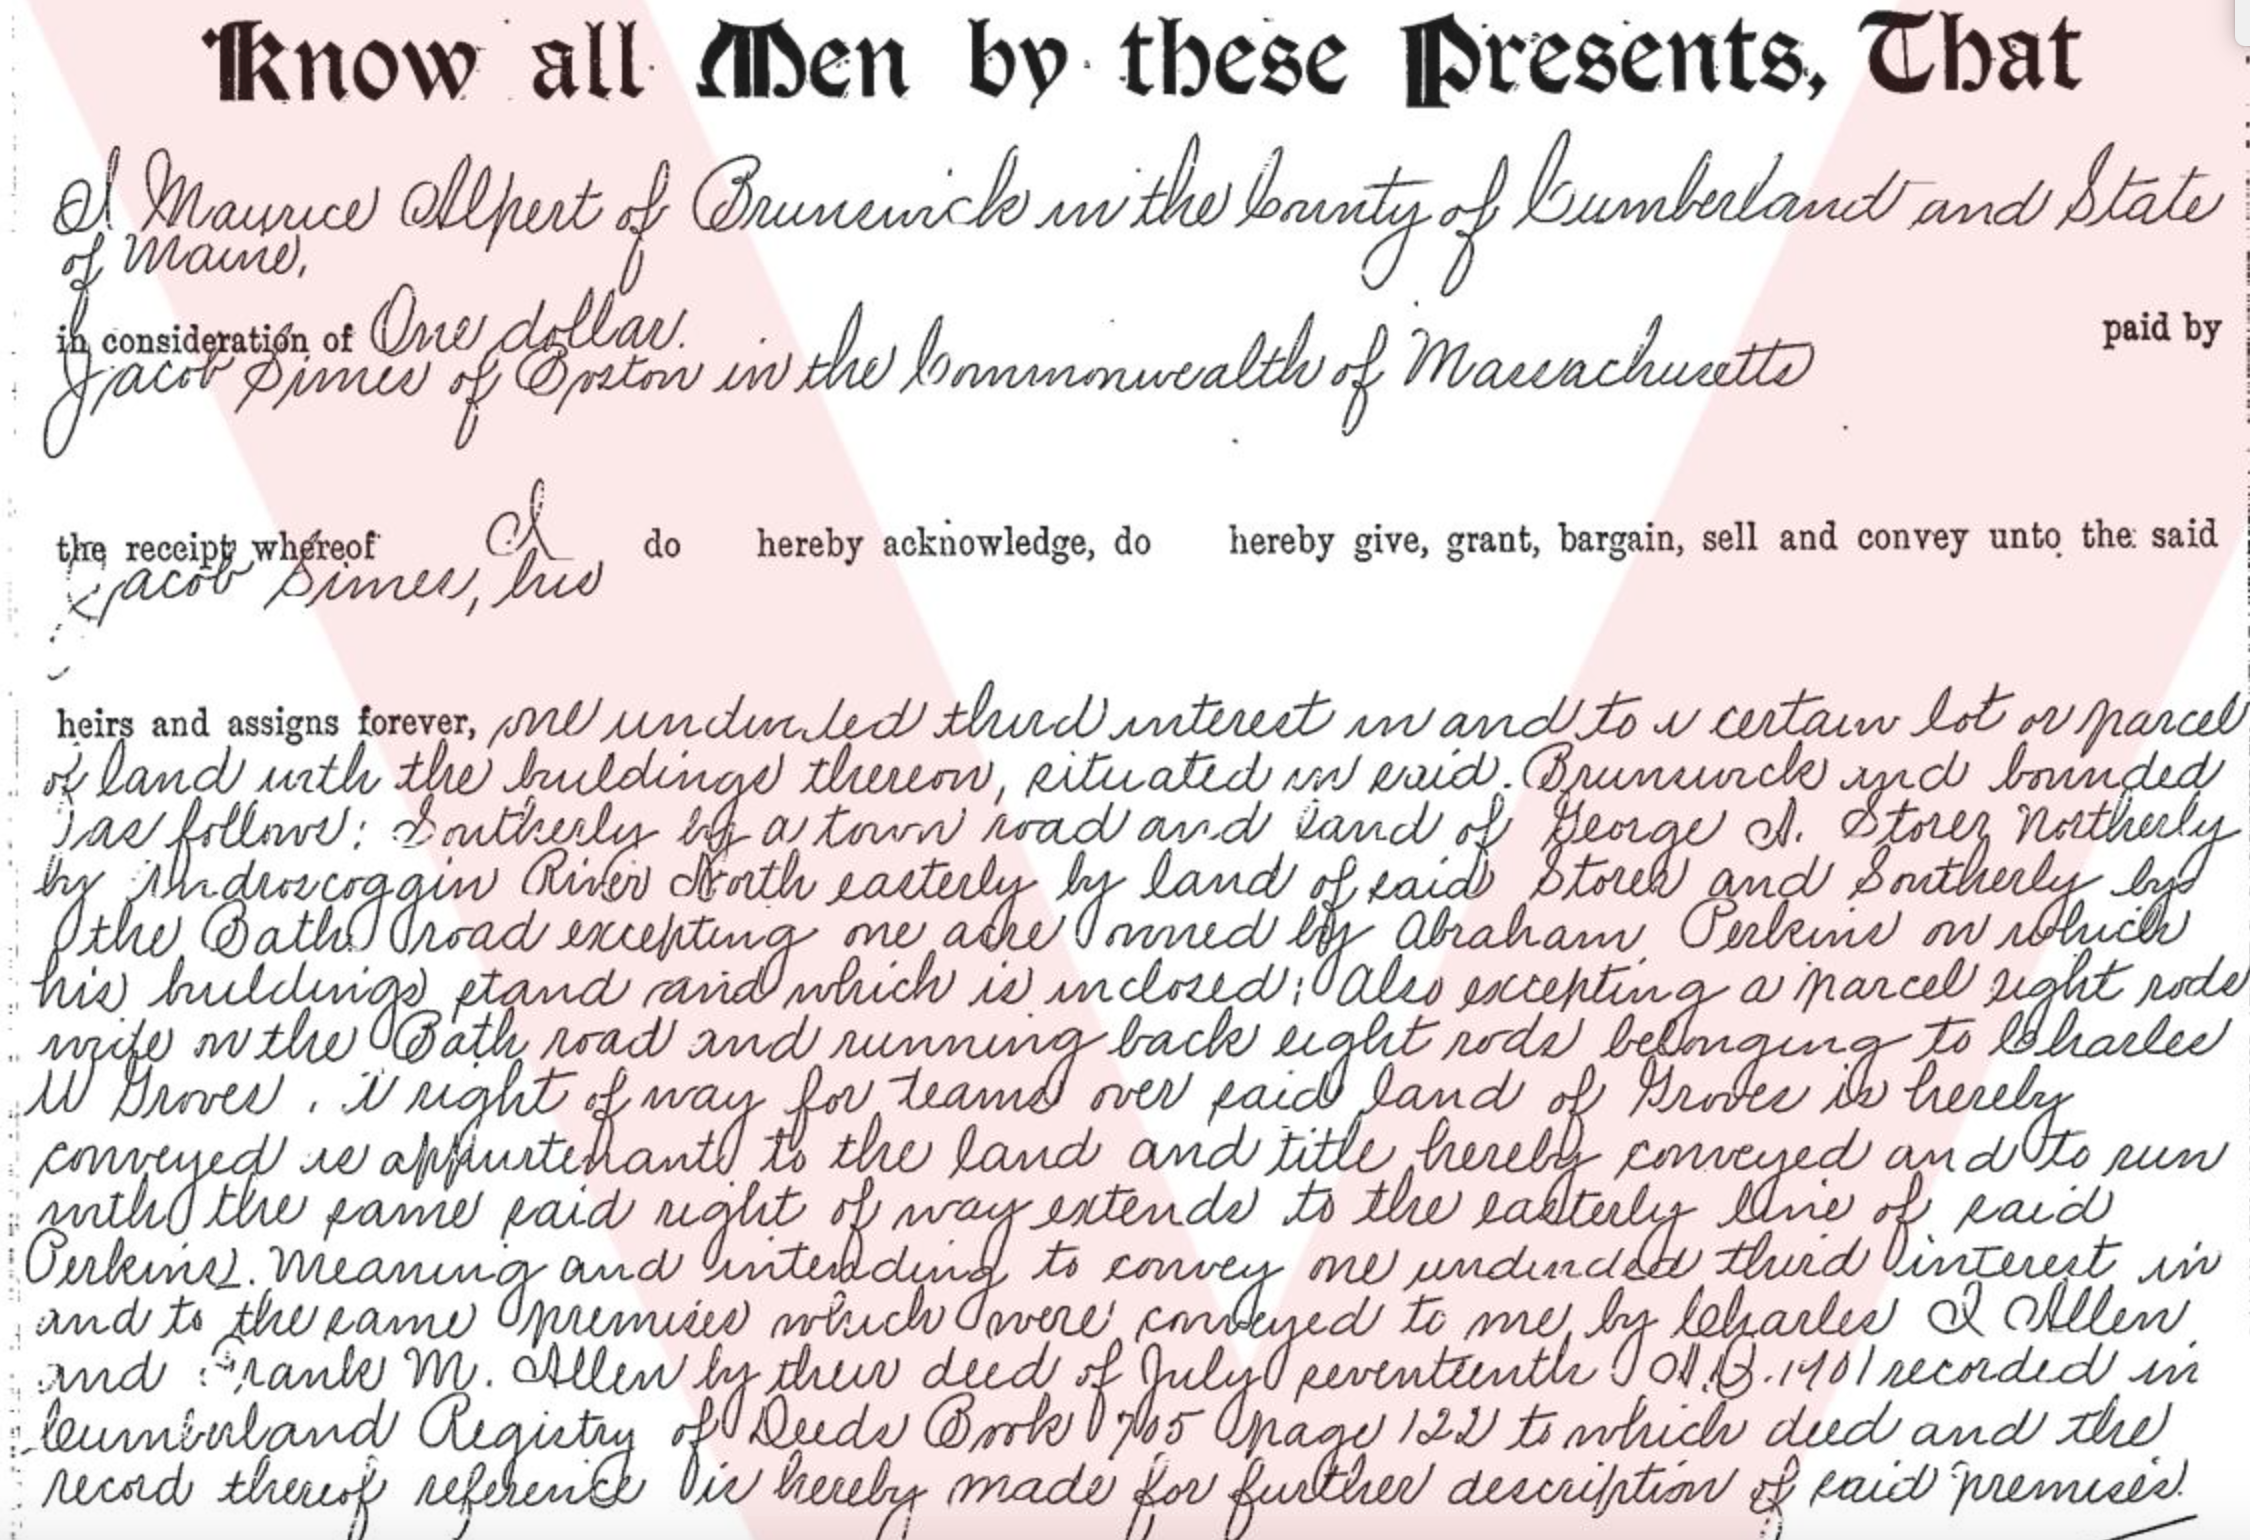 Know all Men by these Presents, That
I Maurice Alpert of Brunswick in the County of Cumberland and State
of Maine,
in consideration of One dollar. paid by
Jacob Simes of Boston in the Commonwealth of Massachusetts
the receipt whereof I do hereby acknowledge, do hereby give, grant, bargain, sell and convey unto the said
Jacob Simes, his
heirs and assigns forever, one undivided third interest in and to a certain lot or parcel
of land with the buildings thereon, situated in said Brunswick and bounded
as follows: Southerly by a town road and land of George A. Storer Northerly
by Androscoggin River North easterly by land of said Storer and Southerly by
the Bath road excepting one acre owned by Abraham Perkins on which
his buildings stand and which is inclosed; Also excepting a parcel eight rods
wide on the Bath road and running back eight rods belonging to Charles
W Groves. A right of way for teams over said land of Groves is hereby
conveyed as appurtenant to the land and title hereby conveyed and to run
with the same said right of way extends to the easterly line of said
Perkins. Meaning and intending to convey one undivided third interest in
and to the same premises which were conveyed to me by Charles I Allen
and Frank M. Allen by their deed of July seventeenth A.D. 1901 recorded in
Cumberland Registry of Deeds Book 705 page 122 to which deed and the
record thereof reference is hereby made for further description of said premises.